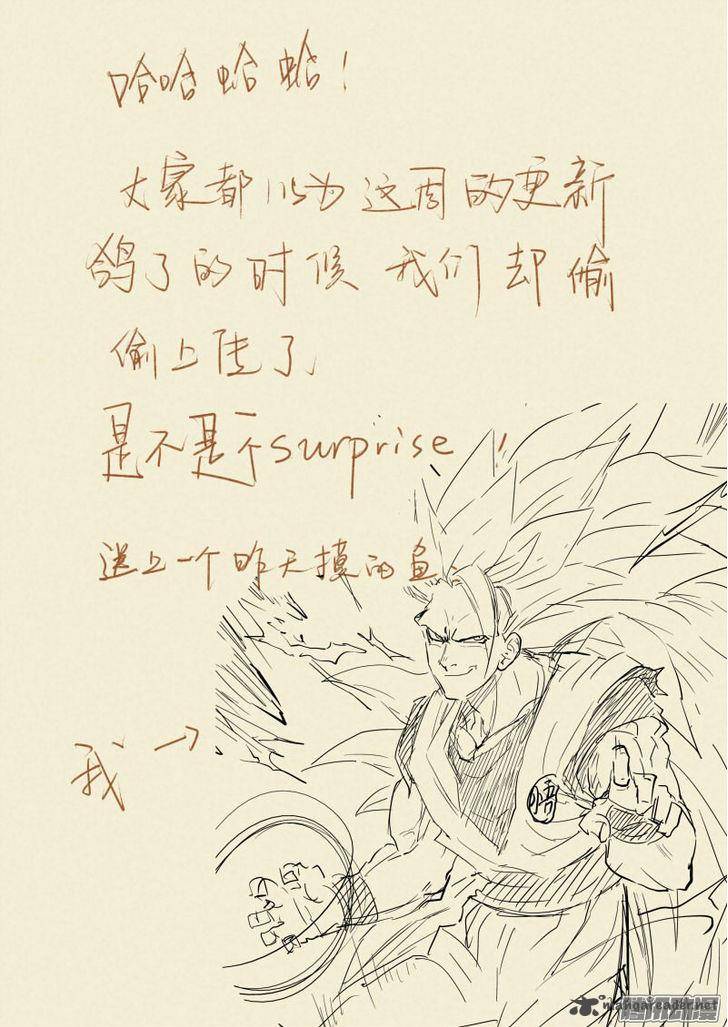 哈哈蛤蛤!
大家都以为这周的更新
鸽了的时候 我们却偷
偷上传了
是不是一个surprise!!
送上一个昨天摸的鱼.
我→
悟
mangareader.net
腾讯动漫